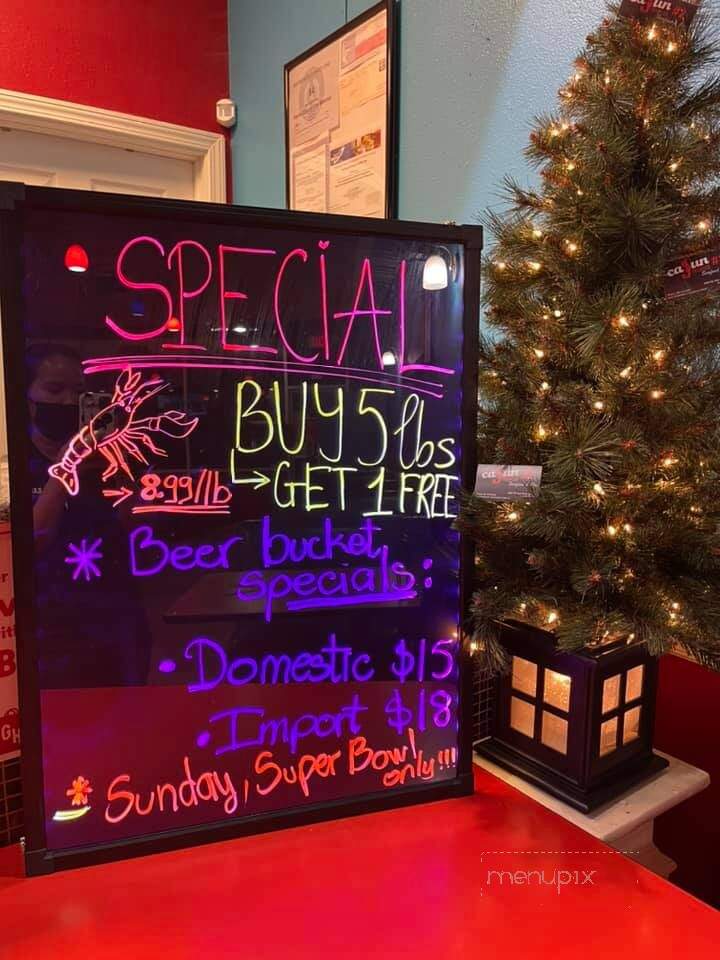 SPECIAL
BUY 5 lbs
→ GET 1 FREE
→ 8.99/lb
* Beer bucket
specials:
• Domestic $15
• Import $18
* Sunday, Super Bowl
only!!!
cajun
cajun
cajun
menupix